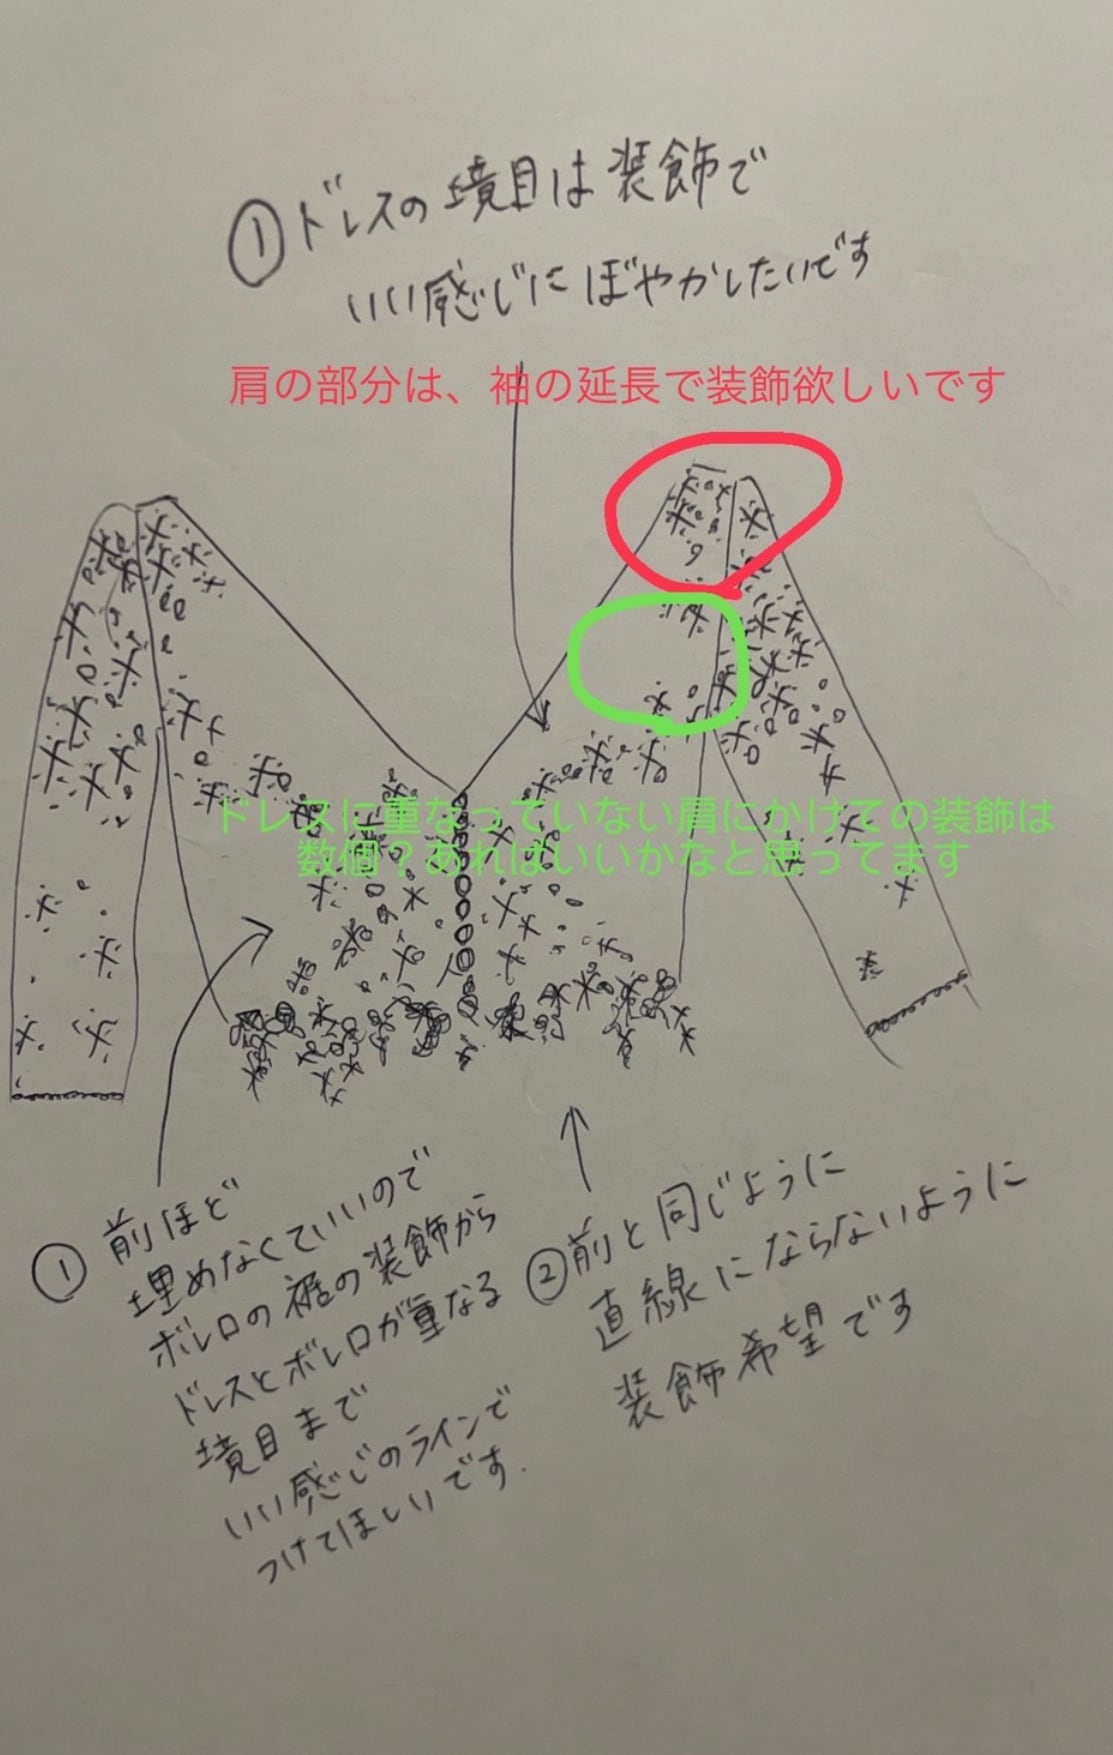 ①ドレスの境目は装飾で
いい感じにぼやかしたいです
肩の部分は、袖の延長で装飾欲しいです
ドレスに重なっていない肩にかけての装飾は
数個?あればいいかなと思ってます
① 前ほど
埋めなくていいので
ボレロの裾の装飾から
ドレスとボレロが重なる
境目まで
いい感じのラインで
つけてほしいです.
②前と同じように
直線にならないように
装飾希望です